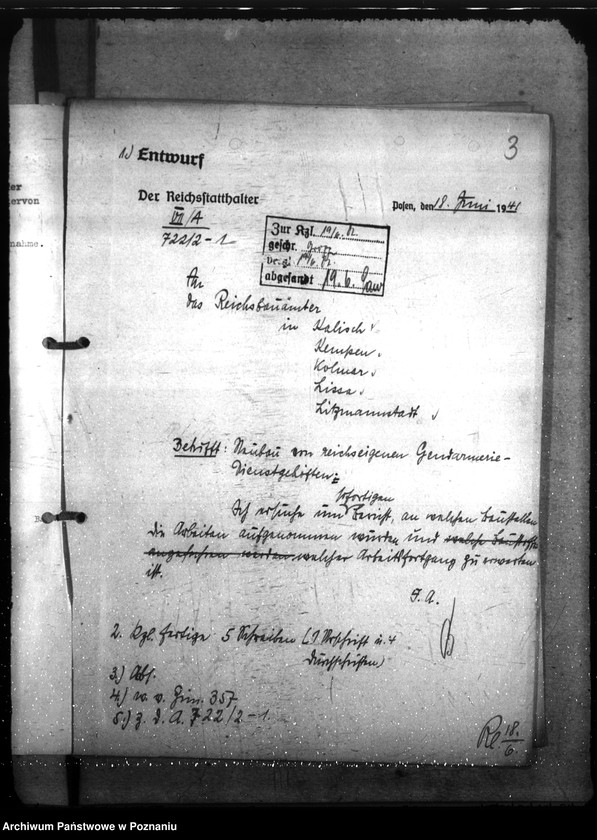 3
1.) Entwurf
Der Reichsstatthalter
VII/A
722/2-1
Posen, den 18. Juni 1941
Zur Kzl. 19/6.
geschr.
abgesandt 19.6.
An
das Reichsbauämter
in Kalisch
Kempen
Kolmar
Lissa
Litzmannstadt
Betrifft: Neubau von reichseigenen Gendarmerie-
Dienstgehöften.
sofortigen
Ich ersuche um Bericht, an welchen Baustellen
die Arbeiten aufgenommen wurden und welche Baustoffe
angefahren werden welcher Arbeitsfortgang zu erwarten
ist.
I. A.
2. Kzl. fertige 5 Schreiben (1 Urschrift u. 4
Durchschriften)
3.) Abs.
4.) w. v. Zim. 357
5.) z. d. A. 722/2-1.
18.
6
nahme.
Archiwum Państwowe w Poznaniu